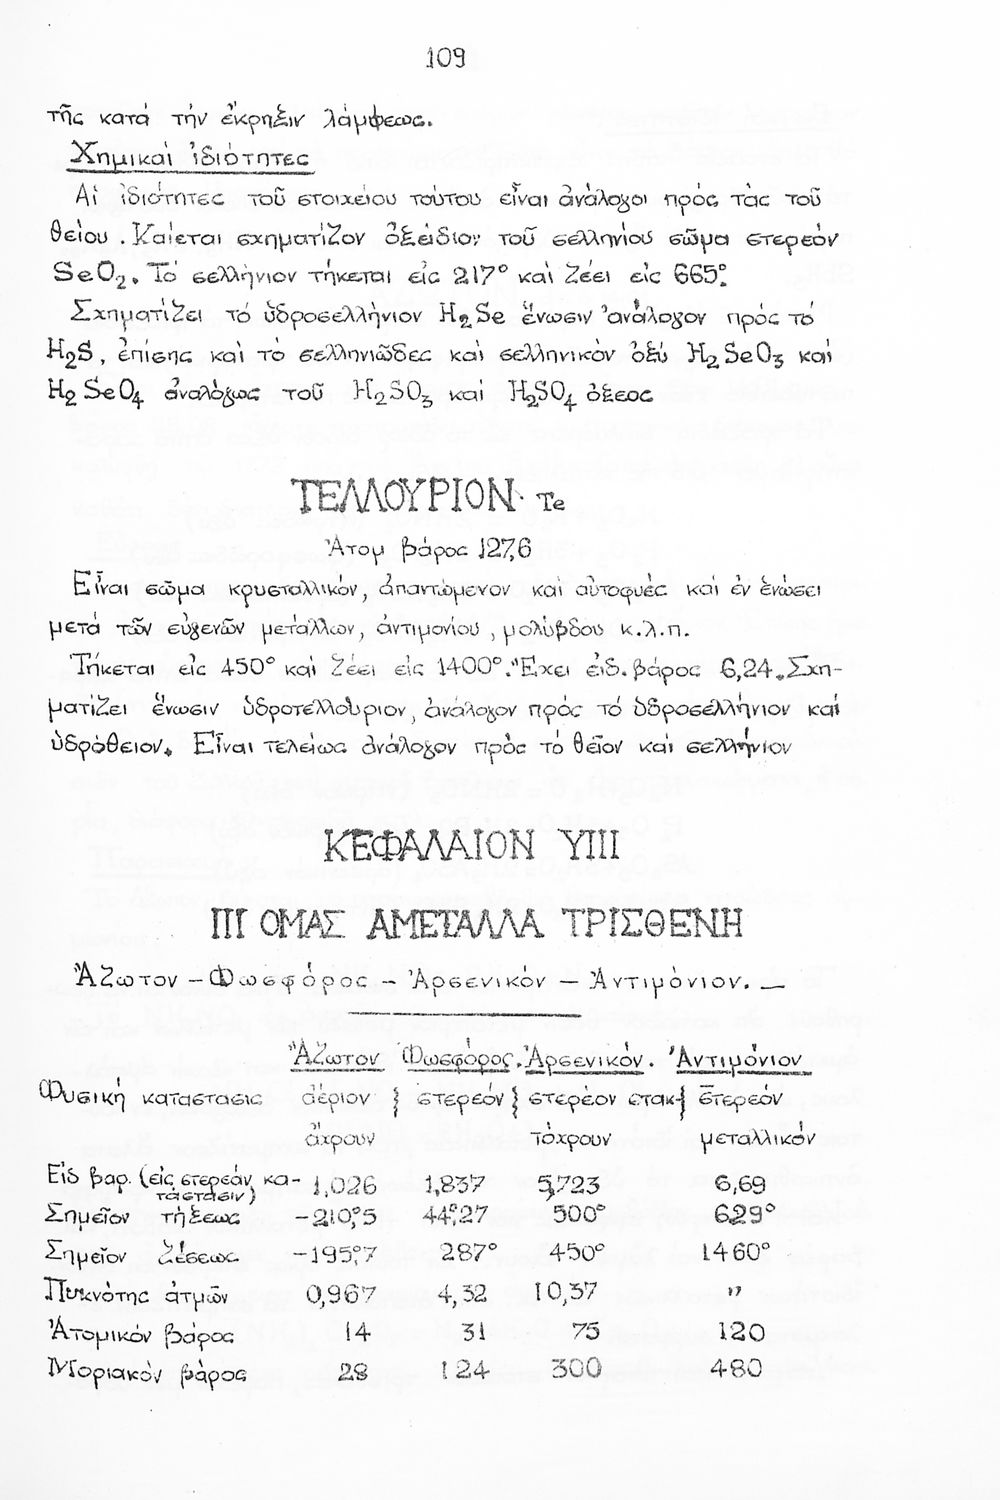 109
τῆς κατά τήν ἐκρηξιν λάμψεως.
Χημικαί ἰδιότητες
Αἱ ἰδιότητες τοῦ στοιχείου τούτου εἶναι ἀνάλογοι πρός τάς τοῦ
θείου. Καίεται σχηματίζον ὀξείδιον τοῦ σελληνίου σῶμα στερεόν
SeO₂. Τό σελλήνιον τήκεται εἰς 217° καί ζέει εἰς 665°.
Σχηματίζει τό ὑδροσελλήνιον H₂Se ἕνωσιν ἀνάλογον πρός τό
H₂S, ἐπίσης καί τό σελληνιῶδες καί σελληνικόν ὀξύ H₂SeO₃ καί
H₂SeO₄ ἀναλόγως τοῦ H₂SO₃ καί H₂SO₄ ὀξεος
ΤΕΛΛΟΥΡΙΟΝ Te
Ἀτομ βάρος 127,6
Εἶναι σῶμα κρυσταλλικόν, ἀπαντώμενον καί αὐτοφυές καί ἐν ἑνώσει
μετά τῶν εὐγενῶν μετάλλων, ἀντιμονίου, μολύβδου κ.λ.π.
Τήκεται εἰς 450° καί ζέει εἰς 1400°. Ἔχει εἰδ. βάρος 6,24. Σχη-
ματίζει ἕνωσιν ὑδροτελλούριον, ἀνάλογον πρός τό ὑδροσελλήνιον καί
ὑδρόθειον. Εἶναι τελείως ἀνάλογον πρός τό θεῖον καί σελλήνιον
ΚΕΦΑΛΑΙΟΝ VIII
III ΟΜΑΣ ΑΜΕΤΑΛΛΑ ΤΡΙΣΘΕΝΗ
Ἄζωτον – Φωσφόρος – Ἀρσενικόν – Ἀντιμόνιον. —
Ἄζωτον Φωσφόρος. Ἀρσενικόν. Ἀντιμόνιον
Φυσική κατάστασις ἀέριον } στερεόν } στερεόν στακ- } στερεόν
ἄχρουν τόχρουν μεταλλικόν
Εἰδ βαρ. (εἰς στερεάν κα- 1,026 1,837 5,723 6,69
τάστασιν)
Σημεῖον τήξεως –210°,5 44°,27 500° 629°
Σημεῖον ζέσεως –195°,7 287° 450° 1460°
Πυκνότης ἀτμῶν 0,967 4,32 10,37 "
Ἀτομικόν βάρος 14 31 75 120
Μοριακόν βάρος 28 124 300 480